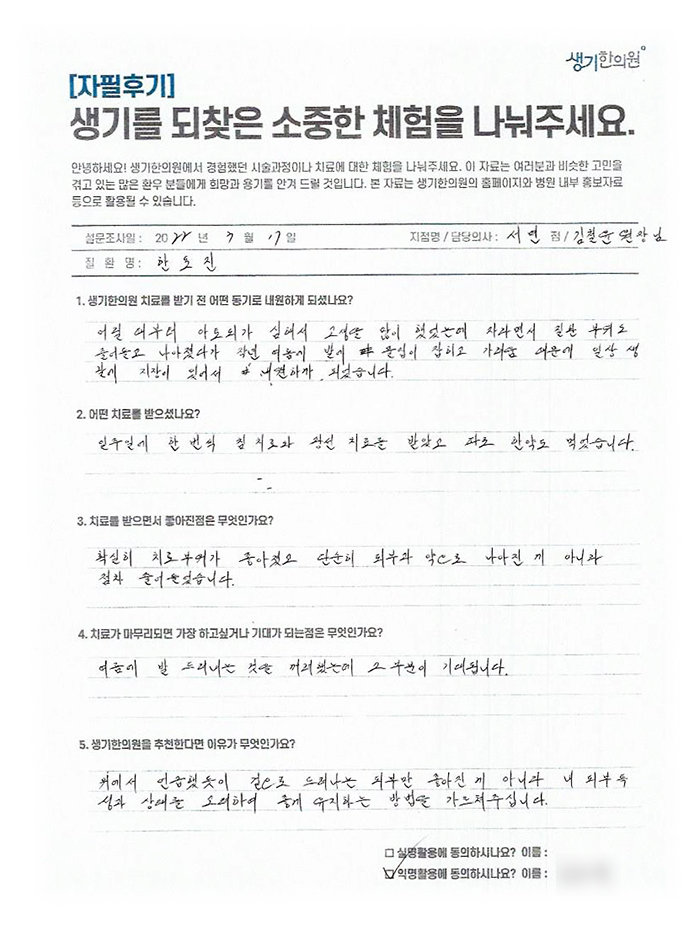 생기한의원
[자필후기]
생기를 되찾은 소중한 체험을 나눠주세요.
안녕하세요! 생기한의원에서 경험했던 시술과정이나 치료에 대한 체험을 나눠주세요. 이 자료는 여러분과 비슷한 고민을
겪고 있는 많은 환우 분들에게 희망과 용기를 안겨 드릴 것입니다. 본 자료는 생기한의원의 홈페이지와 병원 내부 홍보자료
등으로 활용될 수 있습니다.
설문조사일 : 2022 년 3 월 17 일 지점명 / 담당의사 : 서면 점 / 김철윤 원장님
질 환 명 : 한포진
1. 생기한의원 치료를 받기 전 어떤 동기로 내원하게 되셨나요?
어릴 때부터 아토피가 심해서 고생을 많이 했었는데 자라면서 질환 부위도
줄어들고 나아졌다가 작년 여름에 발에 물집이 잡히고 가려움 때문에 일상 생
활에 지장이 있어서 내원하게 되었습니다.
2. 어떤 치료를 받으셨나요?
일주일에 한 번씩 침 치료와 광선 치료를 받았고 따로 한약도 먹었습니다.
3. 치료를 받으면서 좋아진점은 무엇인가요?
확실히 치료부위가 좋아졌고 단순히 피부과 약으로 나아진 게 아니라
점차 줄어들었습니다.
4. 치료가 마무리되면 가장 하고싶거나 기대가 되는점은 무엇인가요?
여름에 발 드러나는 것을 꺼려했는데 그 부분이 기대됩니다.
5. 생기한의원을 추천한다면 이유가 무엇인가요?
위에서 언급했듯이 겉으로 드러나는 피부만 좋아진 게 아니라 내 피부 특
성과 상태를 고려하여 좋게 유지하는 방법을 가르쳐주십니다.
□ 실명활용에 동의하시나요? 이름 :
☑ 익명활용에 동의하시나요? 이름 :